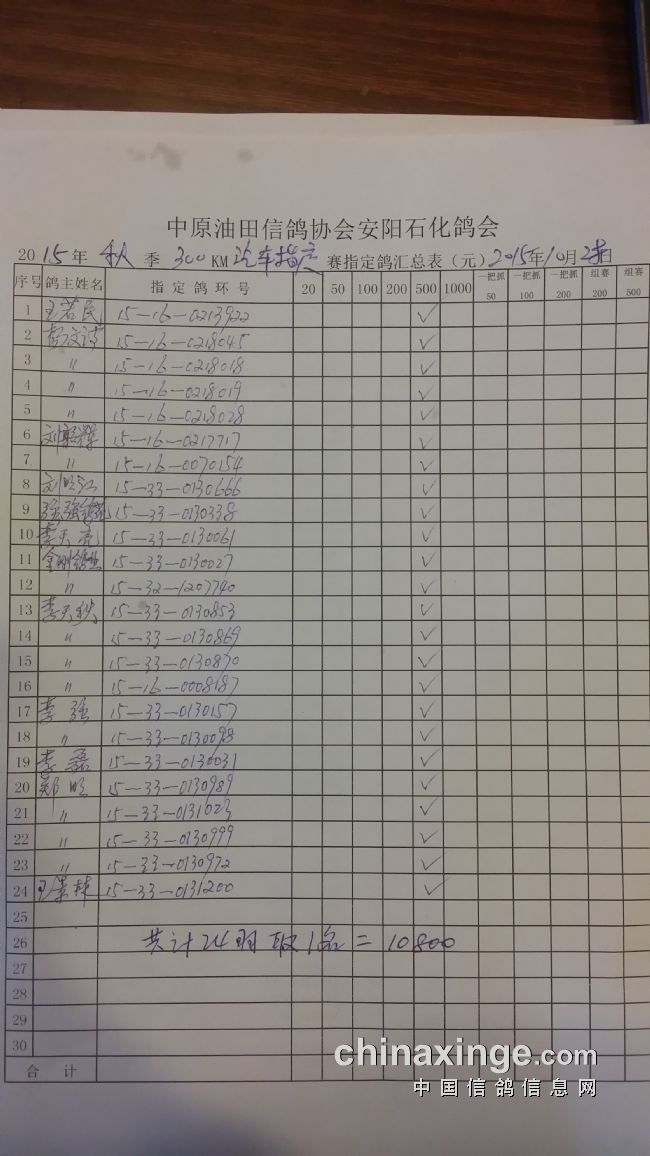 中原油田信鸽协会安阳石化鸽会
2015年 秋 季 300KM 汽车指定 赛指定鸽汇总表（元）2015年10月 日
序号 鸽主姓名 指定鸽环号 20 50 100 200 500 1000 一把抓50 一把抓100 一把抓200 组赛200 组赛500
1 王若民 15-16-0213922 ✓
2 15-16-0218045 ✓
3 〃 15-16-0218018 ✓
4 〃 15-16-0218019 ✓
5 〃 15-16-0218028 ✓
6 15-16-0217717 ✓
7 〃 15-16-0070154 ✓
8 刘明江 15-33-0130666 ✓
9 15-33-0130338 ✓
10 李天亮 15-33-0130061 ✓
11 金刚鸽业 15-33-0130027 ✓
12 〃 15-32-1207740 ✓
13 李天秋 15-33-0130853 ✓
14 〃 15-33-0130869 ✓
15 〃 15-33-0130870 ✓
16 〃 15-16-0008187 ✓
17 李强 15-33-0130157 ✓
18 〃 15-33-0130098 ✓
19 李磊 15-33-0130031 ✓
20 郑旺 15-33-0130989 ✓
21 〃 15-33-0131023 ✓
22 〃 15-33-0130999 ✓
23 〃 15-33-0130972 ✓
24 王景林 15-33-0131200 ✓
25
26 共计24羽 取1名=10800
27
28
29
30
合计
chinaxinge.com
中国信鸽信息网